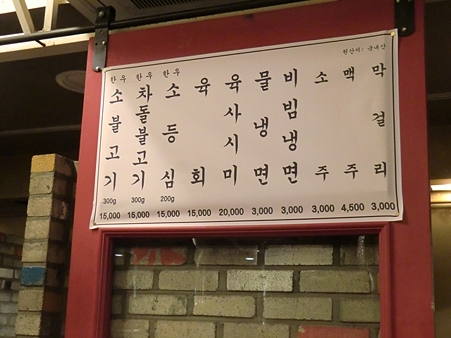 원산지: 국내산
한우 소불고기 300g 15,000
한우 차돌불고기 300g 15,000
한우 소등심 200g 15,000
육회 15,000
육사시미 20,000
물냉면 3,000
비빔냉면 3,000
소주 3,000
맥주 4,500
막걸리 3,000